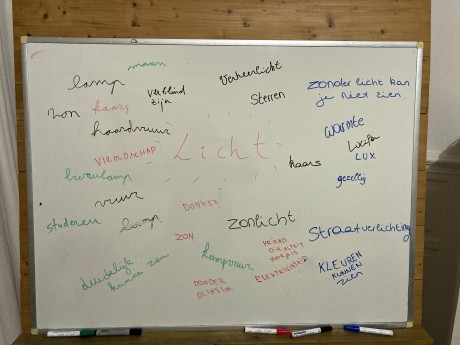 maan
lamp
verkeerlicht
zon
kaars
verblind
zijn
Sterren
zonder licht kan
je niet zien.
haardvuur
VRIENDSCHAP
Licht
warmte
Lucifer
LUX
bureaulamp
kaars
gezellig
vuur
DONKER
studeren
lamp
zonlicht
ZON
Straatverlichting
kampvuur
VRIEND
DIE ALTIJD
VOOR JE IS
duidelijk
kunnen zien
DONDER
BLIKSEM
ELEKTRICITEIT
KLEUREN
KUNNEN
zien